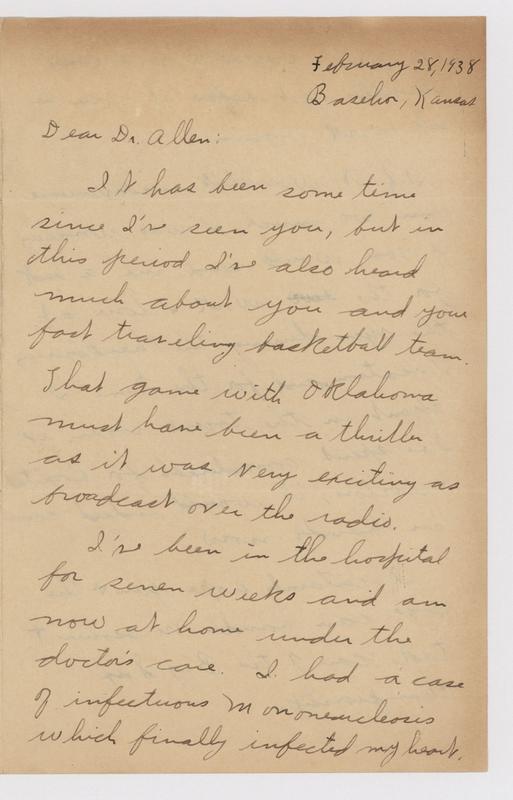 February 28, 1938
Basehor, Kansas
Dear Dr. Allen:
It has been some time
since I've seen you, but in
this period I've also heard
much about you and your
fast traveling basketball team.
That game with Oklahoma
must have been a thriller
as it was very exciting as
broadcast over the radio.
I've been in the hospital
for seven weeks and am
now at home under the
doctor's care. I had a case
of infectuous Mononeucleosis
which finally infected my heart.